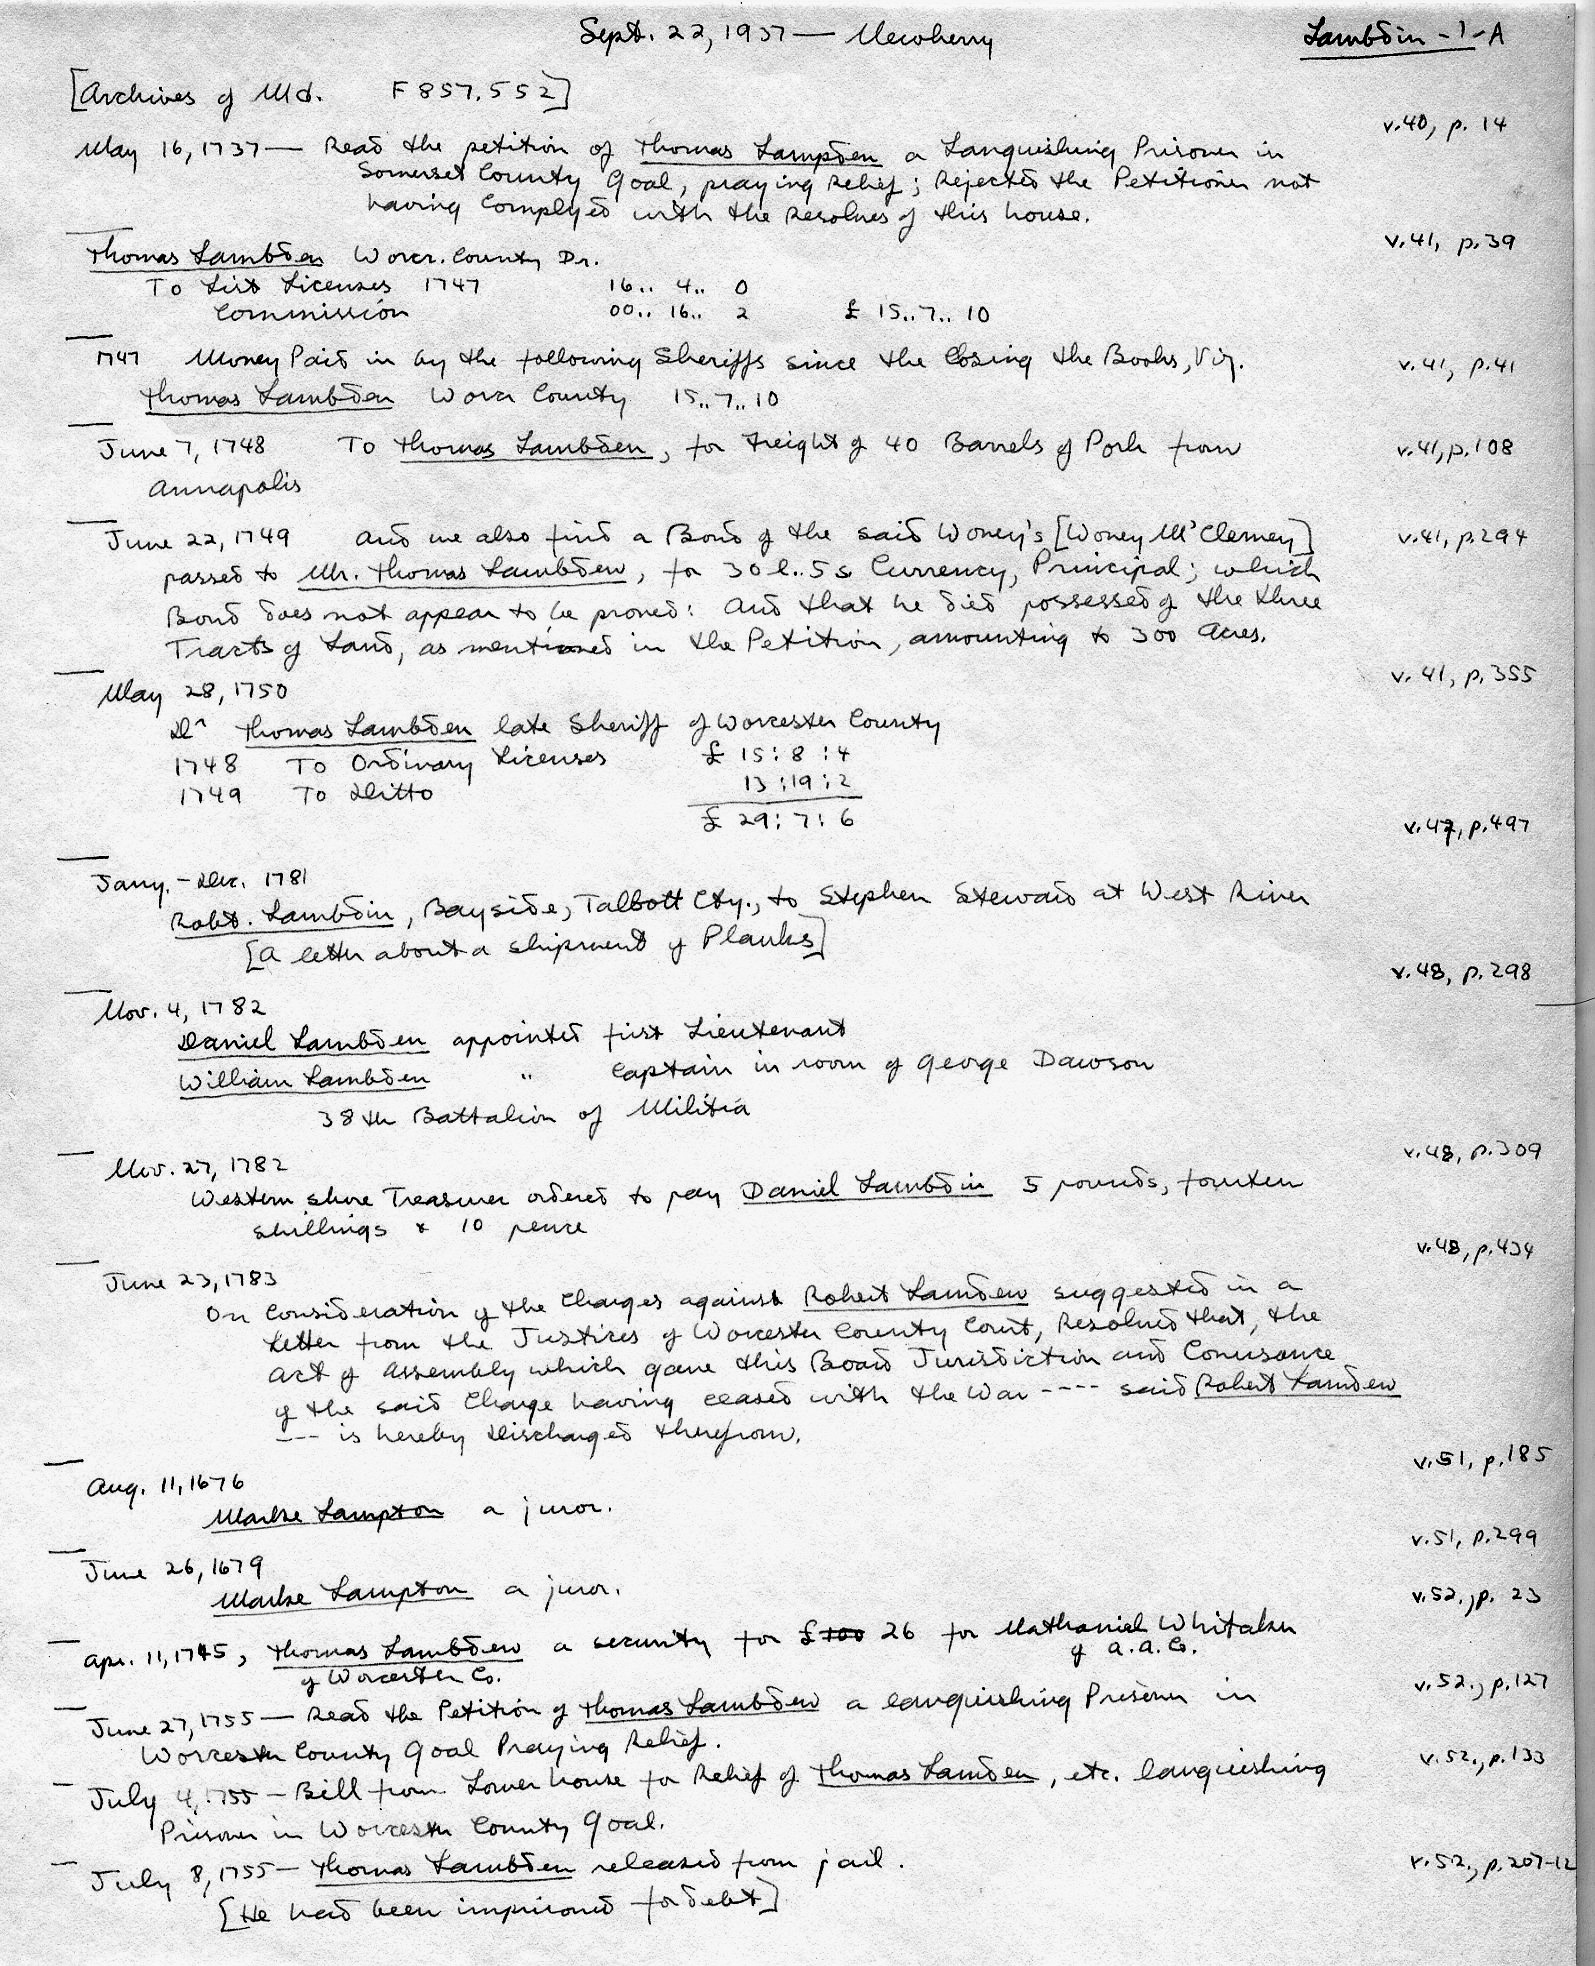 Sept. 22, 1937 — Newberry
Lambdin - 1 - A
[Archives of Md. F 857.552]
v.40, p. 14
May 16, 1737 — Read the petition of Thomas Lampden a Languishing Prisoner in
Somerset County Goal, praying Relief; Rejected the Petitioner not
having Complyed with the Resolves of this house.
v.41, p.39
Thomas Lambden Worcr. County Dr.
To List Licenses 1747 16.. 4.. 0
Commission 00.. 16.. 2 £ 15..7.. 10
1747 Money Paid in by the following Sheriffs since the Closing the Books, Viz.
v.41, p.41
Thomas Lambden Worcr County 15..7..10
June 7, 1748 To Thomas Lambden, for Freight of 40 Barrels of Pork from
v.41, p.108
Annapolis
June 22, 1749 And we also find a Bond of the said Woney's [Woney McClemey]
v.41, p.294
passed to Mr. Thomas Lambden, for 30 l..5 s Currency, Principal; which
Bond does not appear to be proved: And that he died possessed of the three
Tracts of Land, as mentioned in the Petition, amounting to 300 Acres.
v. 41, p. 355
May 28, 1750
Dr Thomas Lambden late Sheriff of Worcester County
1748 To Ordinary Licenses £ 15:8:4
1749 To Ditto 13:19:2
£ 29:7:6
v.47, p.497
Jany. - Dec. 1781
Robt. Lambdin, Bayside, Talbott Cty., to Stephen Steward at West River
[A letter about a shipment of Planks]
v.48, p.298
Nov. 4, 1782
Daniel Lambden appointed first Lieutenant
William Lambden " Captain in room of George Dawson
38th Battalion of Militia
v.48, p.309
Nov. 27, 1782
Western shore Treasurer ordered to pay Daniel Lambdin 5 pounds, fourteen
shillings & 10 pence
v.48, p.434
June 23, 1783
On Consideration of the Charges against Robert Lamden suggested in a
Letter from the Justices of Worcester County Court, Resolved that, the
Act of Assembly which gave this Board Jurisdiction and Conusance
of the said Charge having ceased with the War ---- said Robert Lamden
--- is hereby Discharged therefrom.
v.51, p.185
Aug. 11, 1676
Marke Lampton a juror.
v.51, p.299
June 26, 1679
Marke Lampton a juror.
v.52., p. 23
Apr. 11, 1745, Thomas Lambden a security for £100 26 for Nathaniel Whitaker
of Worcester Co. of A.A. Co.
v.52., p.127
June 27, 1755 — Read the Petition of Thomas Lambden a languishing Prisoner in
Worcester County Goal Praying Relief.
v.52., p.133
July 4, 1755 — Bill from Lower house for Relief of Thomas Lamden, etc. languishing
Prisoner in Worcester County Goal.
July 8, 1755 — Thomas Lambden released from jail.
v.52., p.207-12
[He had been imprisoned for debt]